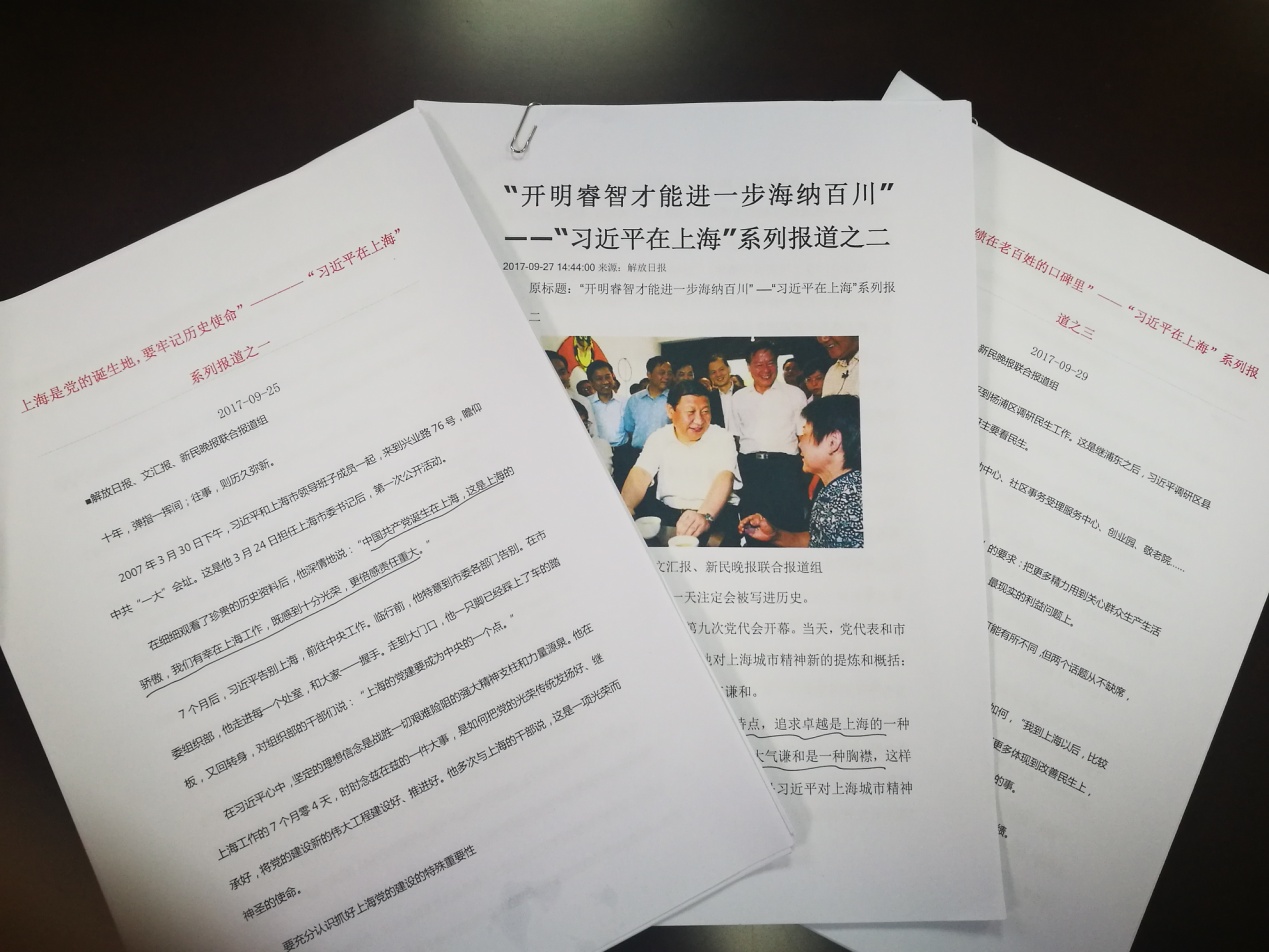 上海是党的诞生地,要牢记历史使命”———“习近平在上海”
系列报道之一
2017-09-25
■解放日报、文汇报、新民晚报联合报道组
十年,弹指一挥间;往事,则历久弥新。
2007年3月30日下午,习近平和上海市领导班子成员一起,来到兴业路76号,瞻仰
中共“一大”会址。这是他3月24日担任上海市委书记后,第一次公开活动。
在细细观看了珍贵的历史资料后,他深情地说:“中国共产党诞生在上海,这是上海的
骄傲,我们有幸在上海工作,既感到十分光荣,更倍感责任重大。”
7个月后,习近平告别上海,前往中央工作。临行前,他特意到市委各部门告别。在市
委组织部,他走进每一个处室,和大家一一握手。走到大门口,他一只脚已经踩上了车的踏
板,又回转身,对组织部的干部们说:“上海的党建要成为中央的一个点。”
在习近平心中,坚定的理想信念是战胜一切艰难险阻的强大精神支柱和力量源泉。他在
上海工作的7个月零4天,时时念兹在兹的一件大事,是如何把党的光荣传统发扬好、继
承好,将党的建设新的伟大工程建设好、推进好。他多次与上海的干部说,这是一项光荣而
神圣的使命。
要充分认识抓好上海党的建设的特殊重要性
“开明睿智才能进一步海纳百川”
——“习近平在上海”系列报道之二
2017-09-27 14:44:00 来源:解放日报
原标题:“开明睿智才能进一步海纳百川” —“习近平在上海”系列报
二
文汇报、新民晚报联合报道组
一天注定会被写进历史。
第九次党代会开幕。当天,党代表和市
对上海城市精神新的提炼和概括:
谦和。
特点,追求卓越是上海的一种
大气谦和是一种胸襟,这样
习近平对上海城市精神
绩在老百姓的口碑里”——“习近平在上海”系列报
道之三
2017-09-29
新民晚报联合报道组
到杨浦区调研民生工作。这是继浦东之后,习近平调研区县
主要看民生。
中心、社区事务受理服务中心、创业园、敬老院……
的要求:把更多精力用到关心群众生产生活
最现实的利益问题上。
可能有所不同,但两个话题从不缺席,
如何,“我到上海以后,比较
更多体现到改善民生上,
的事。
绩。